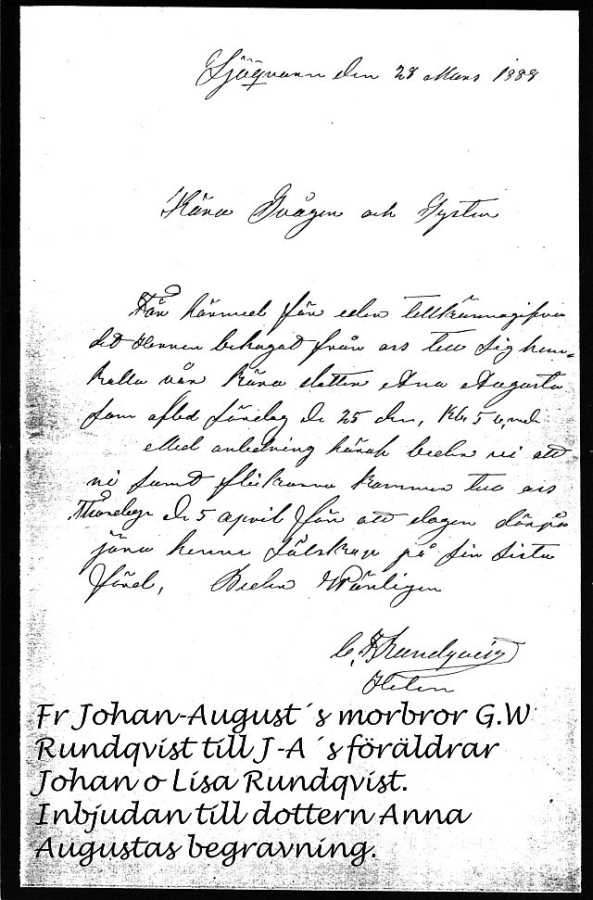 Sjöqvarn den 28 Mars 1888
Kära Svåger och Syster
Får härmed för eder tillkännagifva
det Herren behagat från oss till sig hem-
kalla vår kära dotter Ana Augusta
som afled Söndag d. 25 den, Kl. 5
Med anledning häraf bedia vi att
ni samt flickorna kommer till oss
Thorsdag d. 5 april för att dagen därpå
jöra henne Sälskap på sin sista
färd, Wänligen
Rundqvist
Fr Johan-August´s morbror G.W
Rundqvist till J-A´s föräldrar
Johan o Lisa Rundqvist.
Inbjudan till dottern Anna
Augustas begravning.